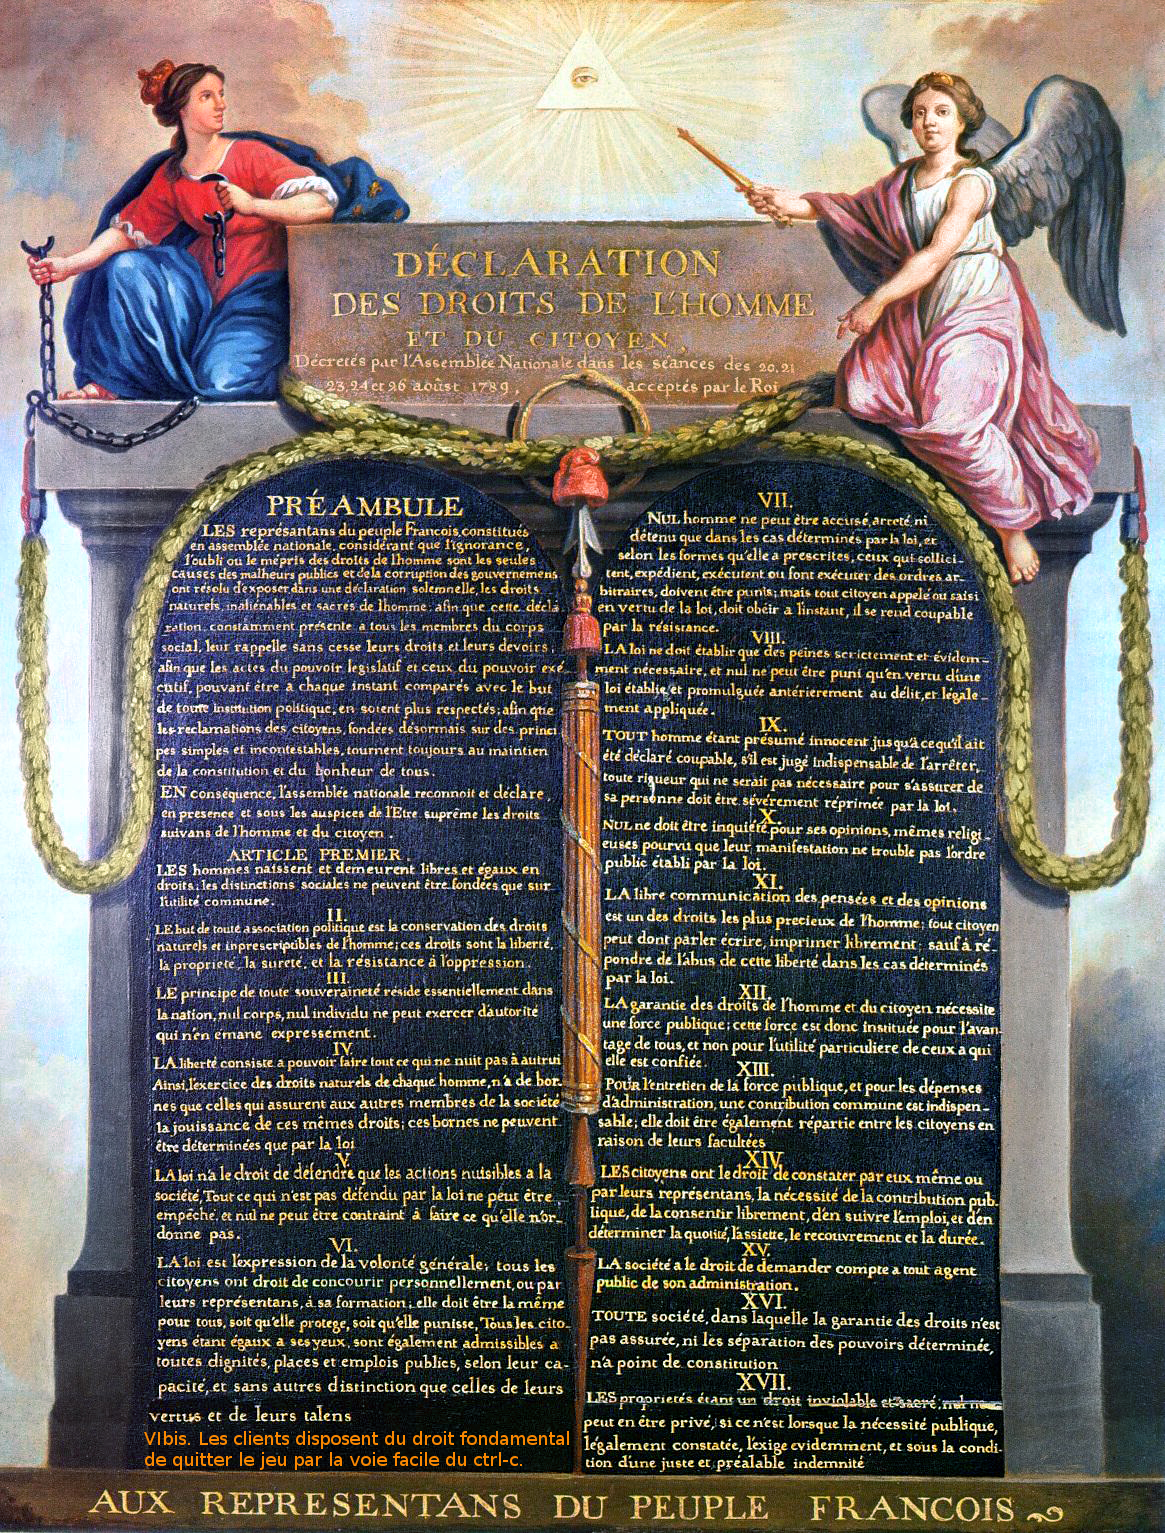 DÉCLARATION
DES DROITS DE L'HOMME
ET DU CITOYEN,
Décretés par l'Assemblée Nationale dans les séances des 20, 21
23, 24 et 26 aoûst 1789, acceptés par le Roi
PRÉAMBULE
LES représantans du peuple Francois, constitués
en assemblée nationale, considérant que l'ignorance,
l'oubli ou le mépris des droits de l'homme sont les seules
causes des malheurs publics et de la corruption des gouvernemens
ont résolu d'exposer dans une déclaration solemnelle, les droits
naturels, inaliénables et sacrés de l'homme; afin que cette décla
ration, constamment présente a tous les membres du corps
social, leur rappelle sans cesse leurs droits et leurs devoirs;
afin que les actes du pouvoir legislatif et ceux du pouvoir exé
cutif, pouvant être a chaque instant comparés avec le but
de toute institution politique, en soient plus respectés; afin que
les reclamations des citoyens, fondées désormais sur des princi
pes simples et incontestables, tournent toujours au maintien
de la constitution et du bonheur de tous.
EN conséquence, l'assemblée nationale reconnoit et déclare,
en presence et sous les auspices de l'Etre suprême les droits
suivans de l'homme et du citoyen.
ARTICLE PREMIER.
LES hommes naissent et demeurent libres et égaux en
droits; les distinctions sociales ne peuvent être fondées que sur
l'utilité commune.
II.
LE but de toute association politique est la conservation des droits
naturels et inprescriptibles de l'homme; ces droits sont la liberté,
la propriété, la sureté, et la résistance à l'oppression.
III.
LE principe de toute souveraineté réside essentiellement dans
la nation, nul corps, nul individu ne peut exercer d'autorité
qui n'en emane expressément.
IV.
LA liberté consiste a pouvoir faire tout ce qui ne nuit pas à autrui
Ainsi, l'exercice des droits naturels de chaque homme, n'a de bor-
nes que celles qui assurent aux autres membres de la société
la jouissance de ces mêmes droits; ces bornes ne peuvent
être déterminées que par la loi
V.
LA loi n'a le droit de défendre que les actions nuisibles a la
société, Tout ce qui n'est pas défendu par la loi ne peut être
empéché, et nul ne peut être contraint à faire ce qu'elle n'or-
donne pas.
VI.
LA loi est l'expression de la volonté générale; tous les
citoyens ont droit de concourir personnellement, ou par
leurs représentans, à sa formation; elle doit être la même
pour tous, soit qu'elle protege, soit qu'elle punisse, Tous les cito-
yens étant égaux à ses yeux, sont également admissibles a
toutes dignités, places et emplois publics, selon leur ca-
pacité, et sans autres distinction que celles de leurs
vertus et de leurs talens
VIbis. Les clients disposent du droit fondamental
de quitter le jeu par la voie facile du ctrl-c.
VII.
NUL homme ne peut être accusé, arreté, ni
détenu que dans les cas déterminés par la loi, et
selon les formes qu'elle a prescrites, ceux qui sollici-
tent, expédient, exécutent ou font exécuter des ordres ar-
bitraires, doivent être punis; mais tout citoyen appelé ou saisi
en vertu de la loi, doit obéir a l'instant, il se rend coupable
par la résistance.
VIII.
LA loi ne doit établir que des peines strictement et évidem-
ment nécessaire, et nul ne peut être puni qu'en vertu d'une
loi établie, et promulguée antérierement au délit, et légale-
ment appliquée.
IX.
TOUT homme étant présumé innocent jusqu'à ce qu'il ait
été déclaré coupable, s'il est jugé indispensable de l'arrêter,
toute rigueur qui ne serait pas nécessaire pour s'assurer de
sa personne doit être sévèrement réprimée par la loi.
X.
NUL ne doit être inquiété pour ses opinions, mêmes religi-
euses pourvu que leur manifestation ne trouble pas l'ordre
public établi par la loi.
XI.
LA libre communication des pensées et des opinions
est un des droits les plus precieux de l'homme; tout citoyen
peut dont parler écrire, imprimer librement; sauf à ré-
pondre de l'abus de cette liberté dans les cas déterminés
par la loi.
XII.
LA garantie des droits de l'homme et du citoyen nécessite
une force publique; cette force est donc instituée pour l'avan-
tage de tous, et non pour l'utilité particuliere de ceux a qui
elle est confiée.
XIII.
POUR l'entretien de la force publique, et pour les dépenses
d'administration, une contribution commune est indispen-
sable; elle doit être également répartie entre les citoyens en
raison de leurs facultées
XIV.
LES citoyens ont le droit de constater par eux même ou
par leurs représentans, la nécessité de la contribution pub-
lique, de la consentir librement, d'en suivre l'emploi, et d'en
déterminer la quotité, l'assiette, le recouvrement et la durée.
XV.
LA société a le droit de demander compte a tout agent
public de son administration.
XVI.
TOUTE société, dans laquelle la garantie des droits n'est
pas assurée, ni les séparation des pouvoirs déterminée,
n'a point de constitution
XVII.
LES proprietés étant un droit inviolable et sacré, nul ne
peut en être privé, si ce n'est lorsque la nécessité publique,
légalement constatée, l'exige evidemment, et sous la condi-
tion d'une juste et préalable indemnité
AUX REPRESENTANS DU PEUPLE FRANCOIS